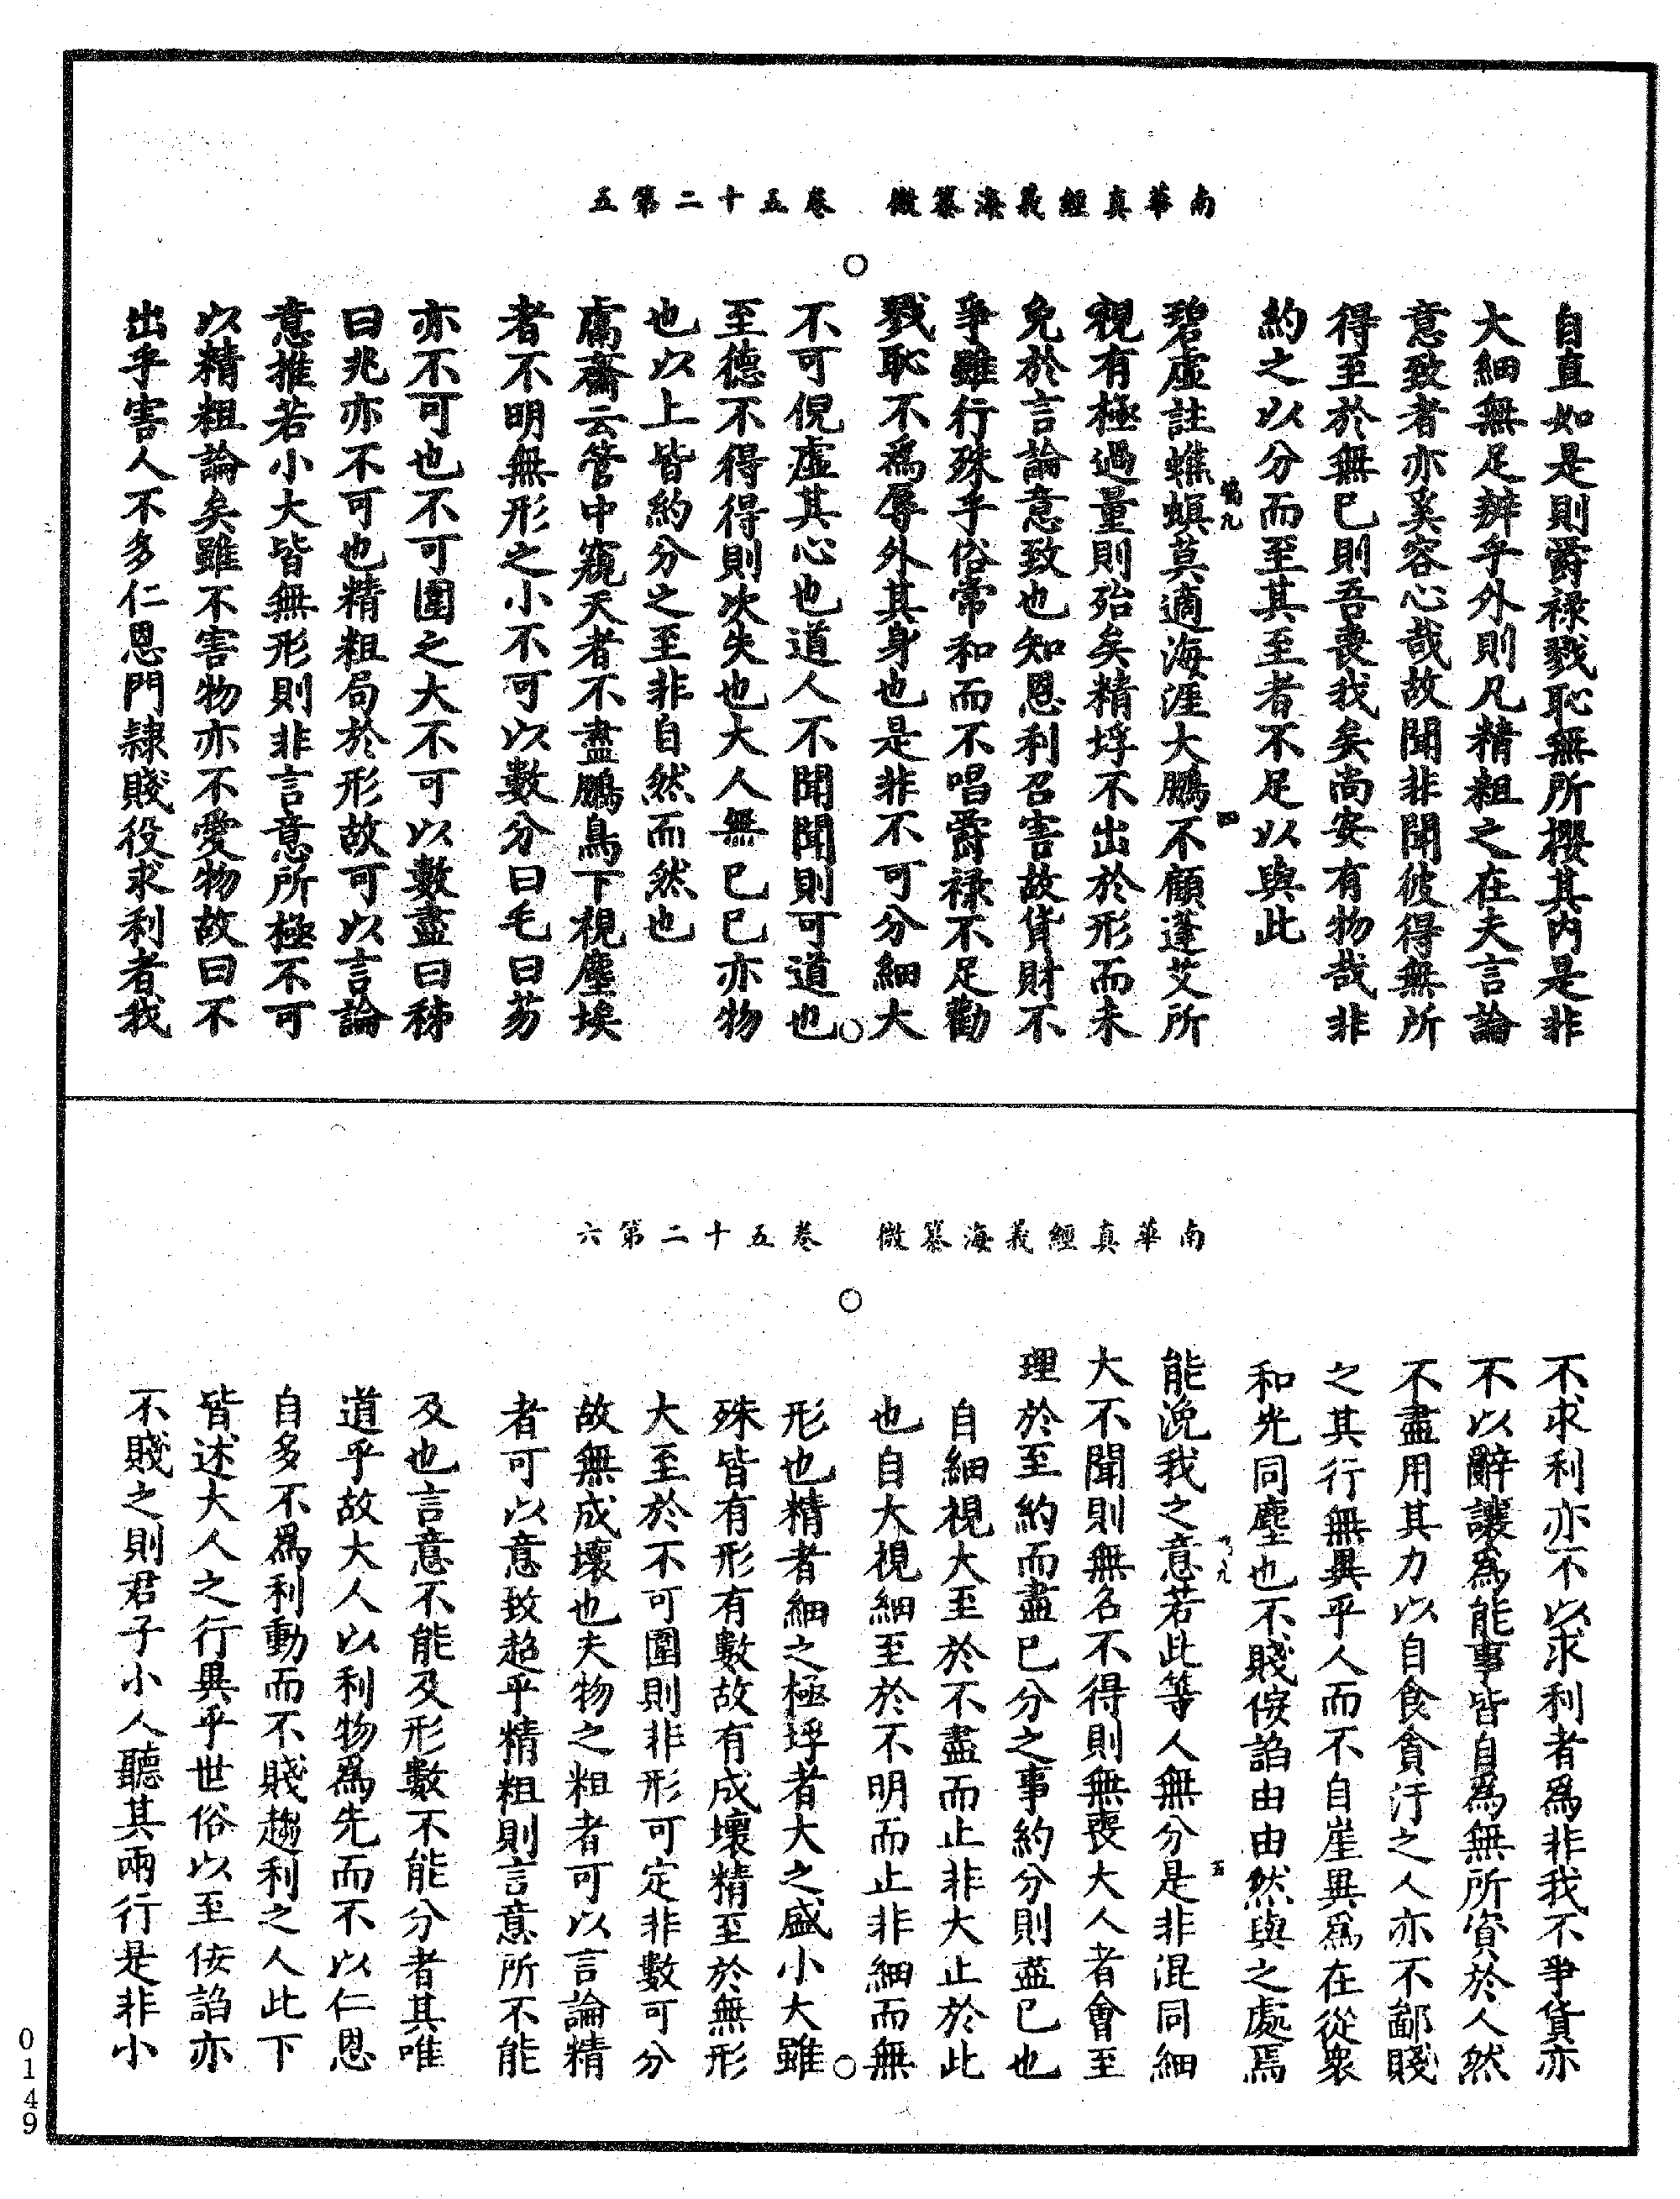 南華真經義海纂微　卷五十二第五
自直如是則爵祿戮恥無所攖其內是非
大細無足辨乎外則凡精粗之在夫言論
意致者亦奚容心哉故聞非聞彼得無所
得至於無已則吾喪我矣尚安有物哉非
約之以分而至其至者不足以與此
碧虛註蟭螟莫適海涯大鵬不顧蓬艾所
視有極過量則殆矣精垺不出於形而未
免於言論意致也知恩利召害故貨財不
爭雖行殊乎俗常和而不唱爵祿不足勸
戮恥不為辱外其身也是非不可分細大
不可倪虛其心也道人不聞聞則可道也
至德不得得則次失也大人無已已亦物
也以上皆約分之至非自然而然也
鬳齋云管中窺天者不盡鵬鳥下視塵埃
者不明無形之小不可以數分曰毛曰芴
亦不可也不可圍之大不可以數盡曰秭
曰兆亦不可也精粗局於形故可以言論
意推若小大皆無形則非言意所極不可
以精粗論矣雖不害物亦不愛物故曰不
出乎害人不多仁恩門隸賤役求利者我
四
南華真經義海纂微　卷五十二第六
不求利亦不以求利者為非我不爭貨亦
不以辭讓為能事皆自為無所資於人然
不盡用其力以自食貪汙之人亦不鄙賤
之其行無異乎人而不自崖異為在從衆
和光同塵也不賤佞諂由由然與之處焉
能浼我之意若此等人無分是非混同細
大不聞則無名不得則無喪大人者會至
理於至約而盡已分之事約分則盡已也
自細視大至於不盡而止非大止於此
也自大視細至於不明而止非細而無
形也精者細之極垺者大之盛小大雖
殊皆有形有數故有成壞精至於無形
大至於不可圍則非形可定非數可分
故無成壞也夫物之粗者可以言論精
者可以意致超乎精粗則言意所不能
及也言意不能及形數不能分者其唯
道乎故大人以利物為先而不以仁恩
自多不為利動而不賤趨利之人此下
皆述大人之行異乎世俗以至佞諂亦
不賤之則君子小人聽其兩行是非小
五
0149